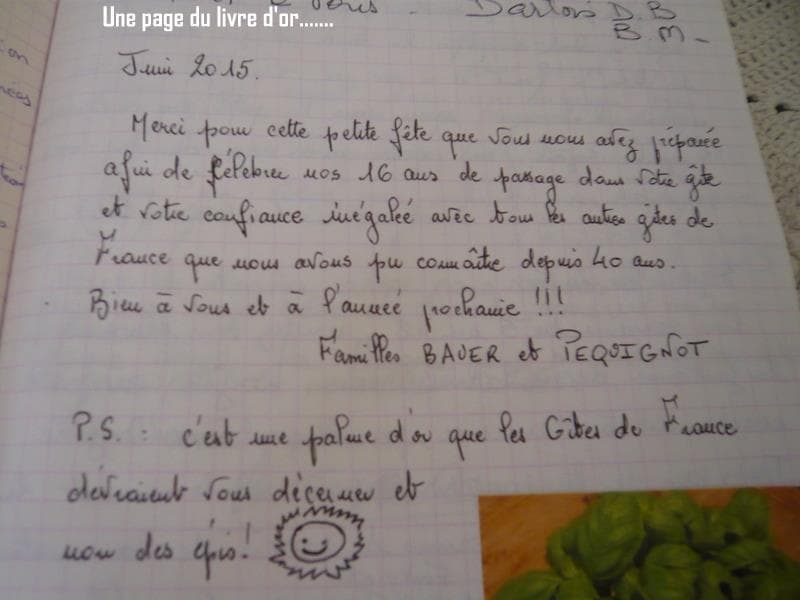 Une page du livre d'or.......
Dartois D.B
B M_
Juin 2015.
Merci pour cette petite fête que vous nous avez préparée
afin de célébrer nos 16 ans de passage dans votre gîte
et votre confiance inégaleé avec tous les autres gîtes de
France que nous avons pu connaître depuis 40 ans.
Bien à vous et à l'anneé prochaine !!!
Familles BAUER et PEQUIGNOT
P.S. : c'est une palme d'or que les Gîtes de France
devraient vous décerner et
non des épis!